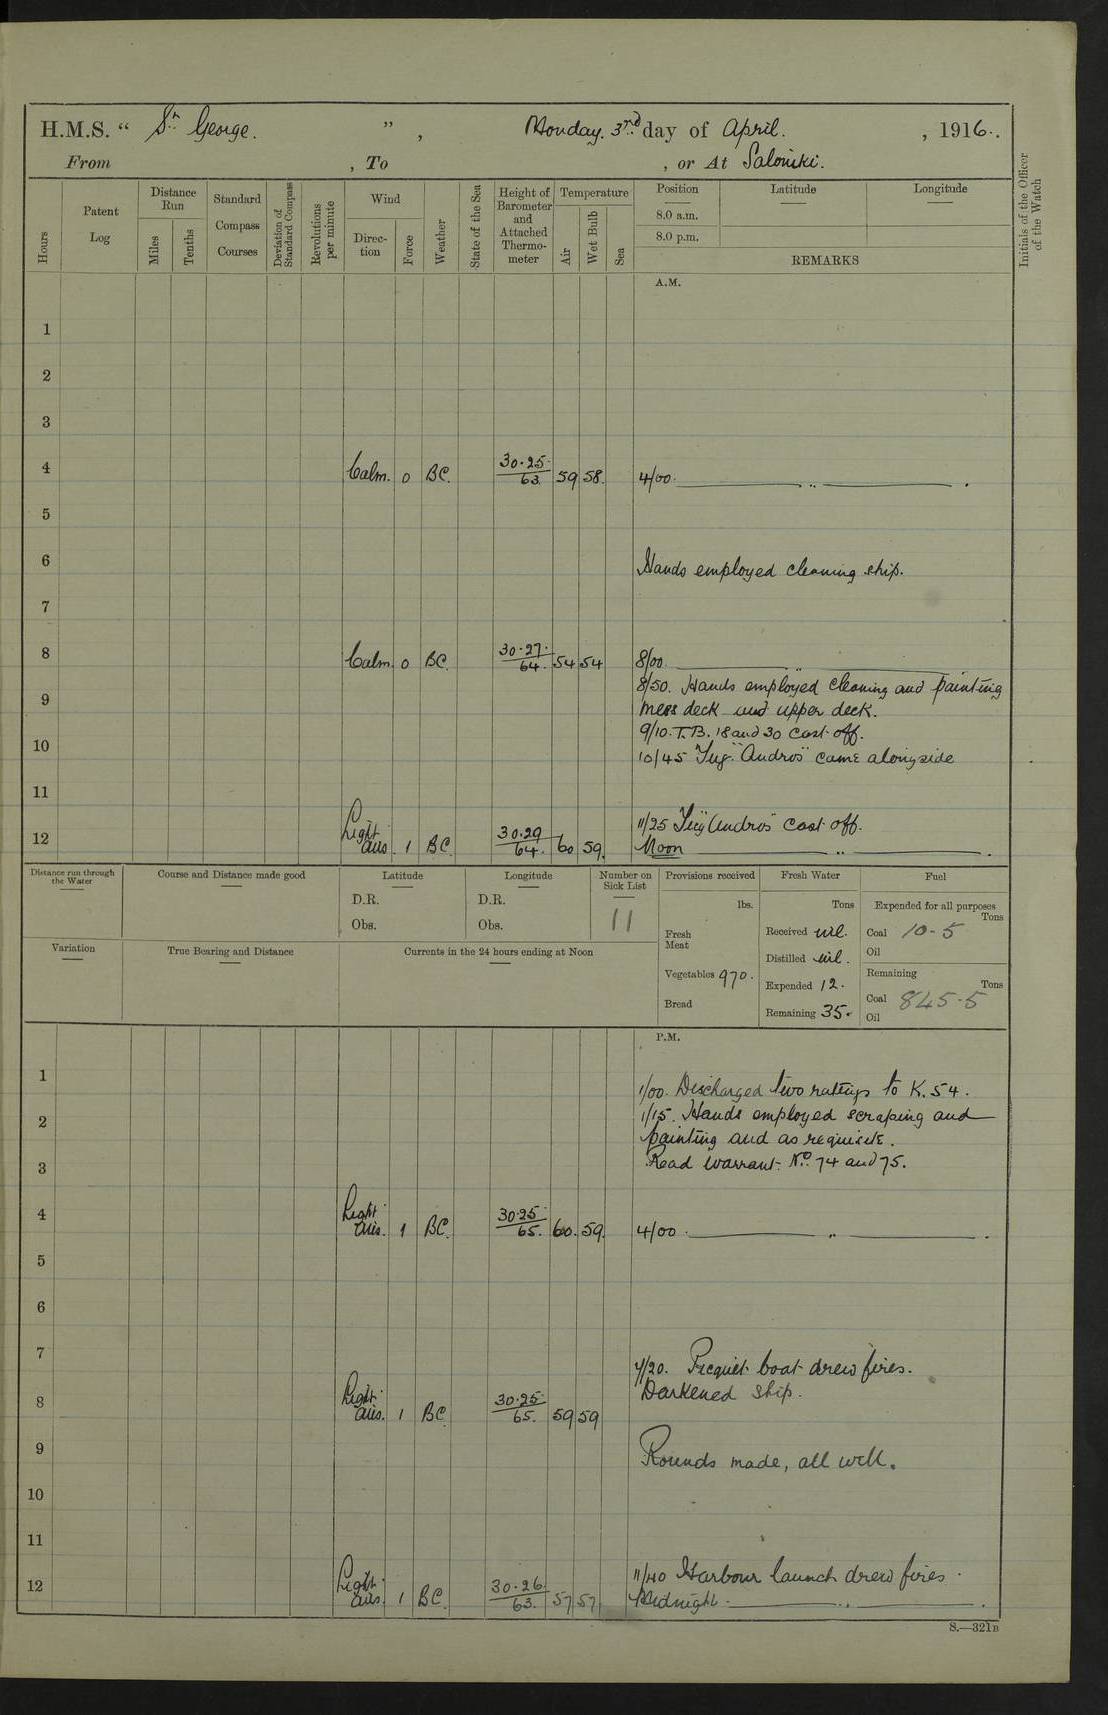 H.M.S. “ St George. ”, Monday. 3rd day of April. , 1916.
From , To , or At Saloniki.
Hours
Patent Log
Distance Run
Miles
Tenths
Standard Compass Courses
Deviation of Standard Compass
Revolutions per minute
Wind
Direc-tion
Force
Weather
State of the Sea
Height of Barometer and Attached Thermo-meter
Temperature
Air
Wet Bulb
Sea
Position Latitude Longitude
8.0 a.m.
8.0 p.m.
REMARKS
Initials of the Officer of the Watch
A.M.
1
2
3
4 Calm. 0 BC. 30.25 63. 59 58. 4/00. ” .
5
6 Hands employed cleaning ship.
7
8 Calm. 0 BC. 30.27. 64. 54 54 8/00. ”
8/50. Hands employed cleaning and painting
9 mess deck and upper deck.
9/10. T.B. 18 and 30 cast off.
10 10/45 Tug "Andros" came alongside
11
11/25 Tug "Andros" cast off.
12 Light airs 1 BC. 30.29 64. 60 59. Noon ” .
Distance run through the Water
Course and Distance made good
Latitude
D.R.
Obs.
Longitude
D.R.
Obs.
Number on Sick List
11
Provisions received
lbs.
Fresh Meat
Vegetables 970.
Bread
Fresh Water
Tons
Received nil.
Distilled nil.
Expended 12.
Remaining 35.
Fuel
Expended for all purposes
Tons
Coal 10-5
Oil
Remaining
Tons
Coal 845-5
Oil
Variation
True Bearing and Distance
Currents in the 24 hours ending at Noon
P.M.
1 1/00. Discharged two ratings to K.54.
2 1/15. Hands employed scraping and
painting and as requisite.
3 Read Warrant. No. 74 and 75.
4 Light airs. 1 BC. 30.25 65. 60. 59. 4/00. ” .
5
6
7 7/20. Picquet boat drew fires.
Darkened ship.
8 Light airs. 1 BC. 30.25 65. 59 59
9 Rounds made, all well.
10
11
11/40 Harbour launch drew fires.
12 Light airs. 1 BC. 30.26. 63. 57 57 Midnight. ” .
S.—321B